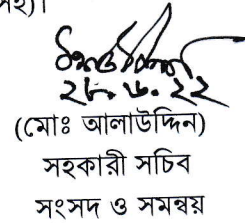 সহ)।
২৮.৬.২২
(মোঃ আলাউদ্দিন)
সহকারী সচিব
সংসদ ও সমন্বয়